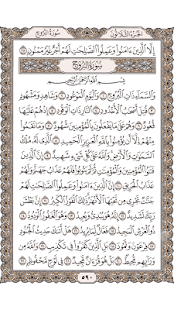 الجزء الثلاثون سورة البروج
إِلَّا ٱلَّذِينَ ءَامَنُوا۟ وَعَمِلُوا۟ ٱلصَّٰلِحَٰتِ لَهُمْ أَجْرٌ غَيْرُ مَمْنُونٍ ٢٥
سورة البروج
بِسْمِ ٱللَّهِ ٱلرَّحْمَٰنِ ٱلرَّحِيمِ
وَٱلسَّمَآءِ ذَاتِ ٱلْبُرُوجِ ١ وَٱلْيَوْمِ ٱلْمَوْعُودِ ٢ وَشَاهِدٍ وَمَشْهُودٍ ٣
قُتِلَ أَصْحَٰبُ ٱلْأُخْدُودِ ٤ ٱلنَّارِ ذَاتِ ٱلْوَقُودِ ٥ إِذْ هُمْ عَلَيْهَا
قُعُودٌ ٦ وَهُمْ عَلَىٰ مَا يَفْعَلُونَ بِٱلْمُؤْمِنِينَ شُهُودٌ ٧ وَمَا نَقَمُوا۟
مِنْهُمْ إِلَّآ أَن يُؤْمِنُوا۟ بِٱللَّهِ ٱلْعَزِيزِ ٱلْحَمِيدِ ٨ ٱلَّذِى لَهُۥ مُلْكُ
ٱلسَّمَٰوَٰتِ وَٱلْأَرْضِ وَٱللَّهُ عَلَىٰ كُلِّ شَىْءٍ شَهِيدٌ ٩ إِنَّ ٱلَّذِينَ
فَتَنُوا۟ ٱلْمُؤْمِنِينَ وَٱلْمُؤْمِنَٰتِ ثُمَّ لَمْ يَتُوبُوا۟ فَلَهُمْ عَذَابُ جَهَنَّمَ وَلَهُمْ
عَذَابُ ٱلْحَرِيقِ ١٠ إِنَّ ٱلَّذِينَ ءَامَنُوا۟ وَعَمِلُوا۟ ٱلصَّٰلِحَٰتِ لَهُمْ
جَنَّٰتٌ تَجْرِى مِن تَحْتِهَا ٱلْأَنْهَٰرُ ذَٰلِكَ ٱلْفَوْزُ ٱلْكَبِيرُ ١١ إِنَّ بَطْشَ
رَبِّكَ لَشَدِيدٌ ١٢ إِنَّهُۥ هُوَ يُبْدِئُ وَيُعِيدُ ١٣ وَهُوَ ٱلْغَفُورُ ٱلْوَدُودُ ١٤
ذُو ٱلْعَرْشِ ٱلْمَجِيدُ ١٥ فَعَّالٌ لِّمَا يُرِيدُ ١٦ هَلْ أَتَىٰكَ حَدِيثُ ٱلْجُنُودِ ١٧
فِرْعَوْنَ وَثَمُودَ ١٨ بَلِ ٱلَّذِينَ كَفَرُوا۟ فِى تَكْذِيبٍ ١٩ وَٱللَّهُ مِن
وَرَآئِهِم مُّحِيطٌ ٢٠ بَلْ هُوَ قُرْءَانٌ مَّجِيدٌ ٢١ فِى لَوْحٍ مَّحْفُوظٍ ٢٢
٥٩٠